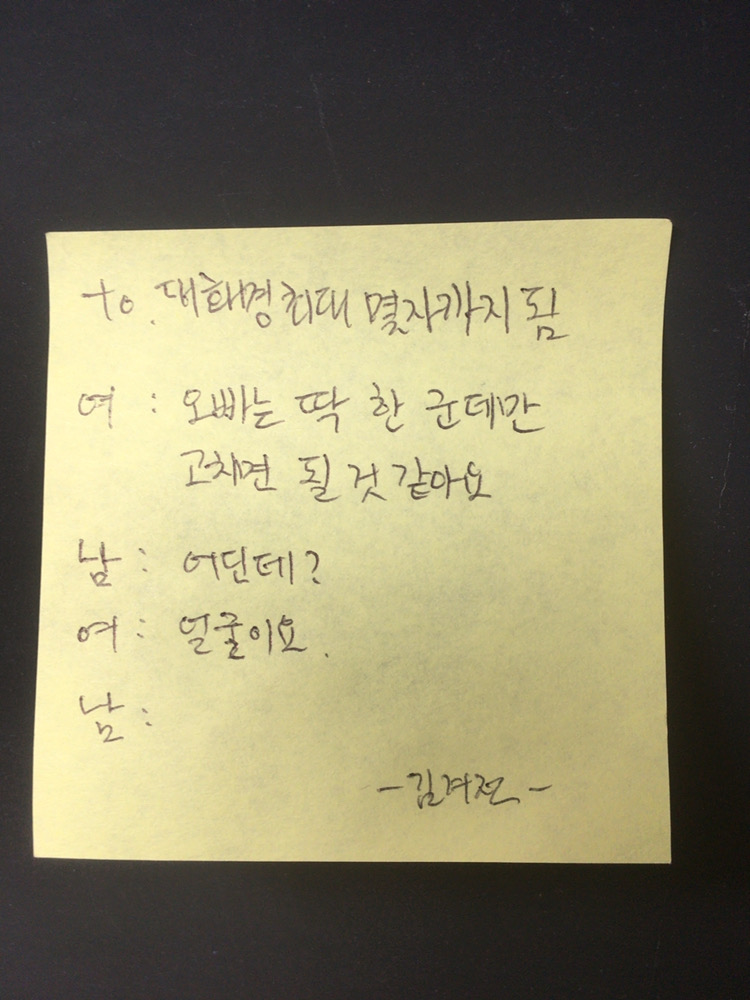 to. 대화명최대 몇자까지 됨
여 : 오빠는 딱 한 군데만
고치면 될 것 같아요
남 : 어딘데?
여 : 얼굴이요.
남 :